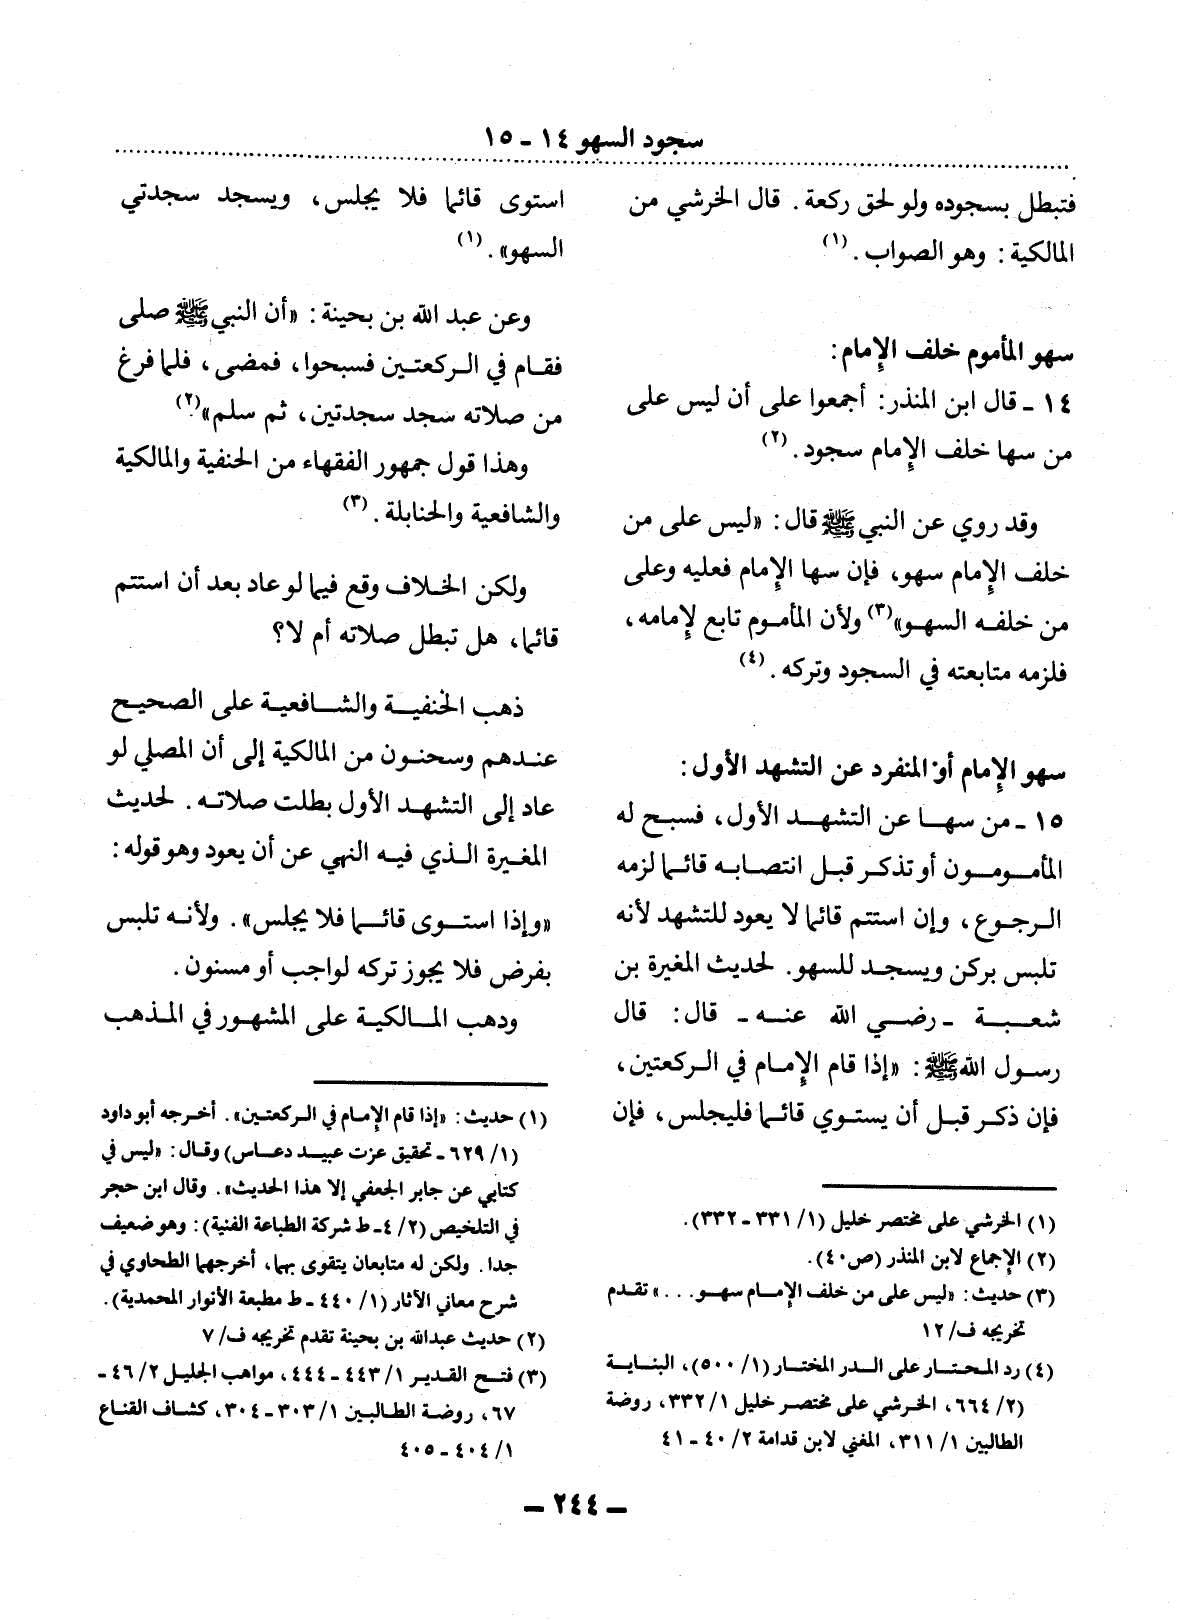 سجود السهو ١٤ - ١٥
فتبطل بسجوده ولو لحق ركعة. قال الخرشي من
المالكية: وهو الصواب. (١)
سهو المأموم خلف الإمام:
١٤ - قال ابن المنذر: أجمعوا على أن ليس على
من سها خلف الإمام سجود. (٢)
وقد روي عن النبي ﷺ قال: «ليس على من
خلف الإمام سهو، فإن سها الإمام فعليه وعلى
من خلفه السهو»(٣) ولأن المأموم تابع لإمامه،
فلزمه متابعته في السجود وتركه. (٤)
سهو الإمام أو المنفرد عن التشهد الأول:
١٥ - من سها عن التشهد الأول، فسبح له
المأمومون أو تذكر قبل انتصابه قائما لزمه
الرجوع، وإن استتم قائما لا يعود للتشهد لأنه
تلبس بركن ويسجد للسهو. لحديث المغيرة بن
شعبة - رضي الله عنه - قال: قال
رسول الله ﷺ: «إذا قام الإمام في الركعتين،
فإن ذكر قبل أن يستوي قائما فليجلس، فإن
(١) الخرشي على مختصر خليل (١/ ٣٣١ - ٣٣٢).
(٢) الإجماع لابن المنذر (ص٤٠).
(٣) حديث: «ليس على من خلف الإمام سهو...» تقدم
تخريجه ف/ ١٢
(٤) رد المحتار على الدر المختار (١/ ٥٠٠)، البناية
(٢/ ٦٦٤، الخرشي على مختصر خليل ١/ ٣٣٢، روضة
الطالبين ١/ ٣١١، المغني لابن قدامة ٢/ ٤٠ - ٤١
استوى قائما فلا يجلس، ويسجد سجدتي
السهو». (١)
وعن عبد الله بن بحينة: «أن النبي ﷺ صلى
فقام في الركعتين فسبحوا، فمضى، فلما فرغ
من صلاته سجد سجدتين، ثم سلم»(٢)
وهذا قول جمهور الفقهاء من الحنفية والمالكية
والشافعية والحنابلة. (٣)
ولكن الخلاف وقع فيما لو عاد بعد أن استتم
قائما، هل تبطل صلاته أم لا؟
ذهب الحنفية والشافعية على الصحيح
عندهم وسحنون من المالكية إلى أن المصلي لو
عاد إلى التشهد الأول بطلت صلاته. لحديث
المغيرة الذي فيه النهي عن أن يعود وهو قوله:
«وإذا استوى قائما فلا يجلس». ولأنه تلبس
بفرض فلا يجوز تركه لواجب أو مسنون.
وذهب المالكية على المشهور في المذهب
(١) حديث: «إذا قام الإمام في الركعتين». أخرجه أبو داود
(١/ ٦٢٩ - تحقيق عزت عبيد دعاس) وقال: «ليس في
كتابي عن جابر الجعفي إلا هذا الحديث». وقال ابن حجر
في التلخيص (٢/ ٤ - ط شركة الطباعة الفنية): وهو ضعيف
جدا. ولكن له متابعان يتقوى بهما، أخرجهما الطحاوي في
شرح معاني الآثار (١/ ٤٤٠ - ط مطبعة الأنوار المحمدية).
(٢) حديث عبدالله بن بحينة تقدم تخريجه ف/ ٧
(٣) فتح القدير ١/ ٤٤٣ - ٤٤٤، مواهب الجليل ٢/ ٤٦ -
٦٧، روضة الطالبين ١/ ٣٠٣ - ٣٠٤، كشاف القناع
١/ ٤٠٤ - ٤٠٥
- ٢٤٤ -